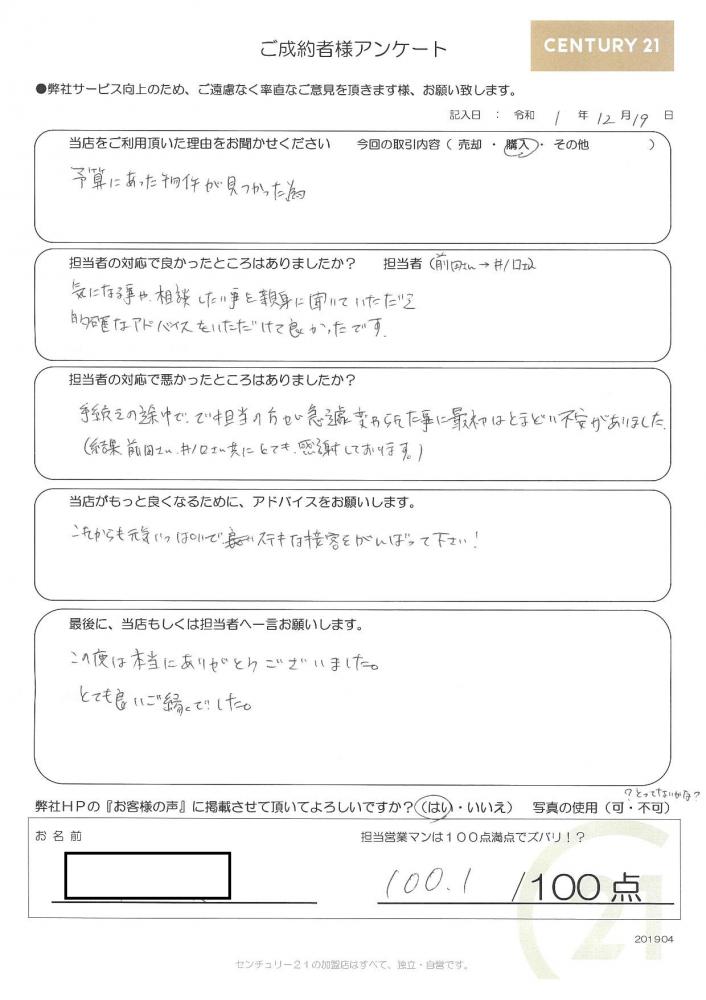 ご成約者様アンケート
CENTURY 21
●弊社サービス向上のため、ご遠慮なく率直なご意見を頂きます様、お願い致します。
記入日 ： 令和 1 年 12 月 19 日
当店をご利用頂いた理由をお聞かせください 今回の取引内容（ 売却 ・ 購入 ・ その他 ）
予算にあった物件が見つかった為
担当者の対応で良かったところはありましたか？ 担当者（前田さん→井ノ口さん）
気になる事や、相談したい事を親身に聞いていただき
的確なアドバイスをいただけて良かったです。
担当者の対応で悪かったところはありましたか？
手続きの途中で、ご担当の方が急遽変わられた事に最初はとまどい不安がありました。
（結果前田さん、井ノ口さん共にとても感謝しております。）
当店がもっと良くなるために、アドバイスをお願いします。
これからも元気いっぱいで ステキな接客をがんばって下さい！
最後に、当店もしくは担当者へ一言お願いします。
この度は本当にありがとうございました。
とても良いご縁でした。
？とってないかな？
弊社ＨＰの『お客様の声』に掲載させて頂いてよろしいですか？（はい・いいえ） 写真の使用（可・不可）
お名前 担当営業マンは１００点満点でズバリ！？
100.1 /100点
21
201904
センチュリー２１の加盟店はすべて、独立・自営です。